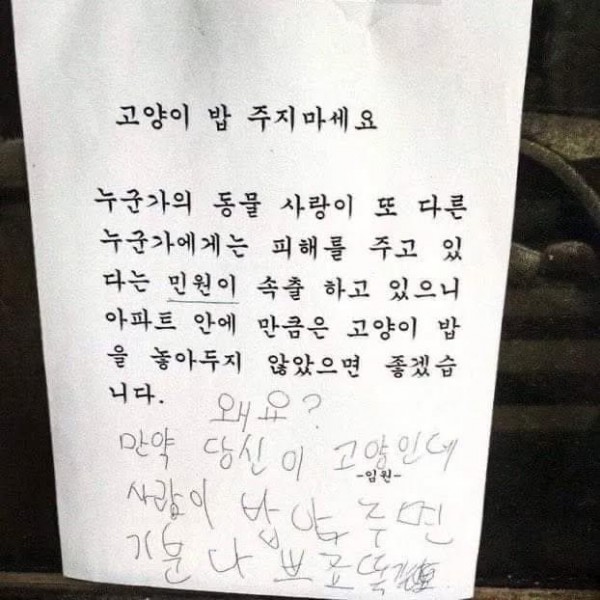 고양이 밥 주지마세요
누군가의 동물 사랑이 또 다른
누군가에게는 피해를 주고 있
다는 민원이 속출 하고 있으니
아파트 안에 만큼은 고양이 밥
을 놓아두지 않았으면 좋겠습
니다.
왜요?
만약 당신이 고양인데
-임원-
사람이 밥 안 주면
기분 나쁘죠 똑같